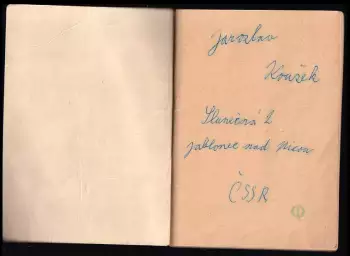 Jaroslav
Koužek
Sluneční 2
Jablonec nad Nisou
ČSSR